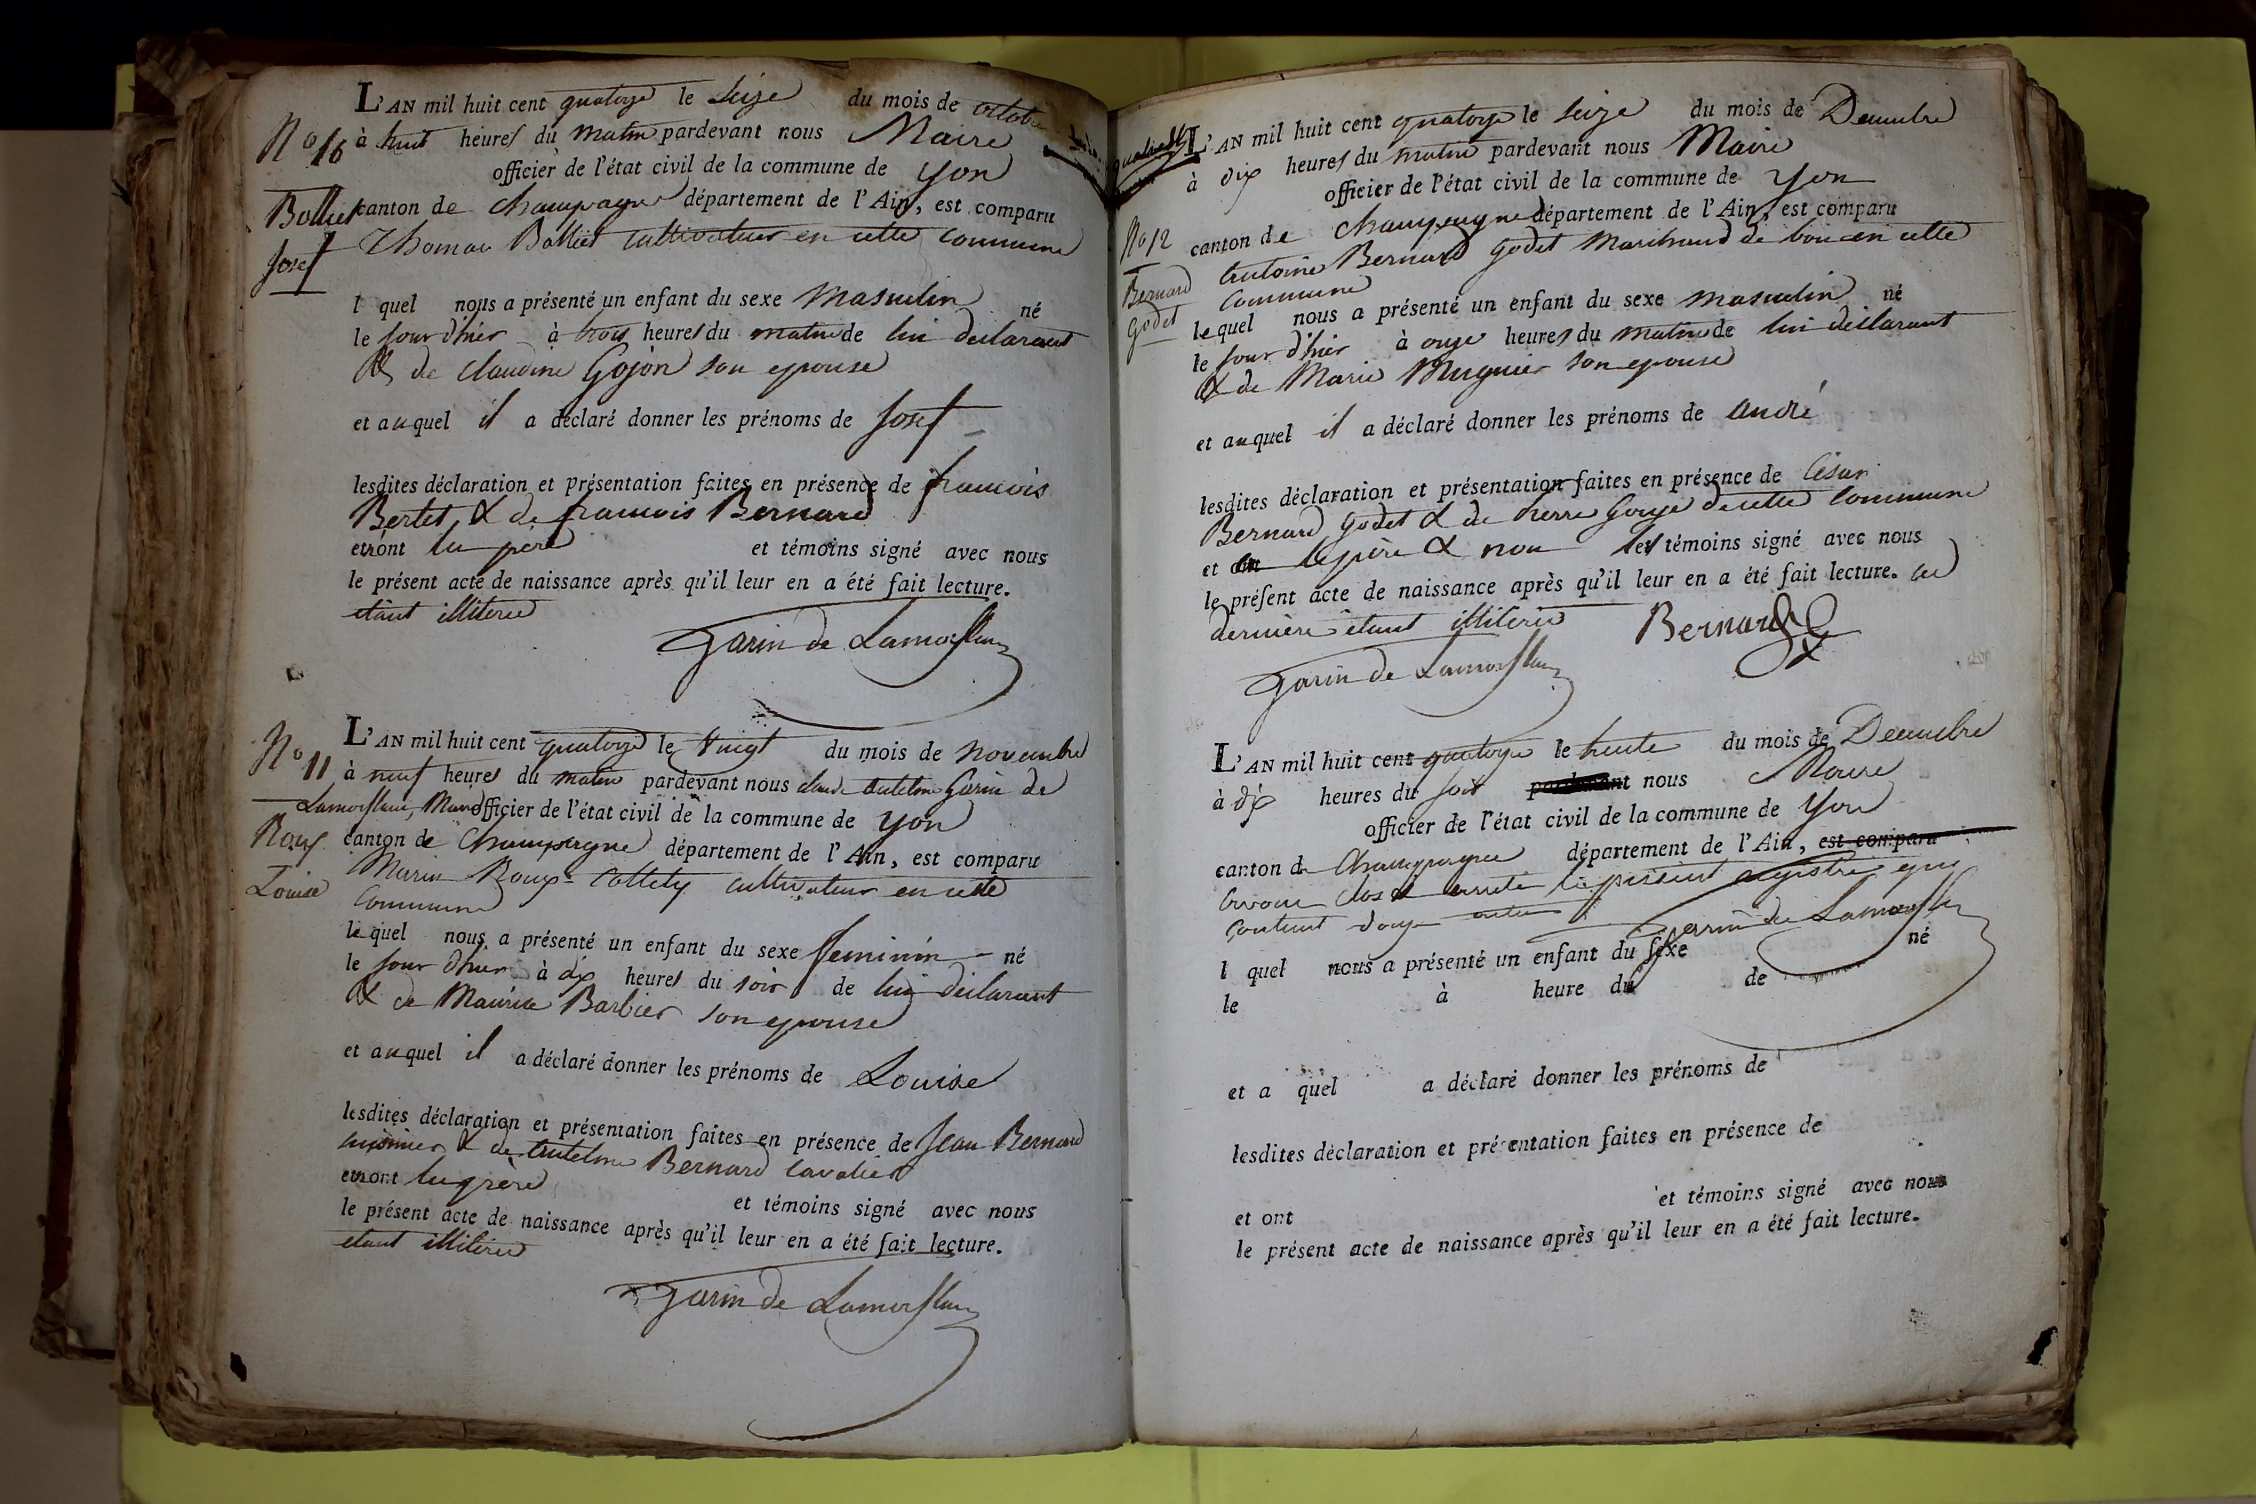 L'AN mil huit cent quatorze le Seize du mois de octobre
No 10 à huit heures du matin pardevant nous Maire
officier de l'état civil de la commune de yon
Bolliet canton de champagne département de l'Ain, est comparu
Josef Thomas Bolliet cultivateur en cette commune
l quel nous a présenté un enfant du sexe Masculin né
le jour d'hier à trois heures du matin de lui declarant
& de claudine Gojon son epouse
et auquel il a déclaré donner les prénoms de Josef
lesdites déclaration et présentation faites en présence de francois
Bertet & de francois Bernard
et ont lu pere et témoins signé avec nous
le présent acte de naissance après qu'il leur en a été fait lecture.
etant illiteré
Garin de Lamorflan
L'AN mil huit cent quatorze le vingt du mois de novembre
No 11 à neuf heures du matin pardevant nous claude antelme Garin de
Lamorflan, Maire officier de l'état civil de la commune de yon
Roux canton de Champagne département de l'Ain, est comparu
Louise Marin Roux-Collety cultivateur en cette
commune
lequel nous a présenté un enfant du sexe feminin né
le jour d'hier à dix heures du soir de lui declarant
& de Maurice Barbier son epouse
et auquel il a déclaré donner les prénoms de Louise
lesdites déclaration et présentation faites en présence de Jean Bernard
& de Antelme Bernard Cavalier
et ont et témoins signé avec nous
le présent acte de naissance après qu'il leur en a été fait lecture.
etant illiteré
Garin de Lamorflan
L'AN mil huit cent quatorze le seize du mois de Decembre
à dix heures du matin pardevant nous Maire
officier de l'état civil de la commune de yon
No 12 canton de champagne département de l'Ain, est comparu
Bernard Antoine Bernard Godet Marchand de bois en cette
Godet Commune
lequel nous a présenté un enfant du sexe masculin né
le jour d'hier à onze heures du matin de lui declarant
& de Marie Mugnier son epouse
et auquel il a déclaré donner les prénoms de andré
lesdites déclaration et présentation faites en présence de César
Bernard Godet & de pierre Gouje de cette commune
et le père & non les témoins signé avec nous
le présent acte de naissance après qu'il leur en a été fait lecture. ces
derniers étant illiteré
Bernard
Garin de Lamorflan
L'AN mil huit cent quatorze le trente du mois de Decembre
à dix heures du soir pardevant nous Maire
officier de l'état civil de la commune de yon
canton de Champagne département de l'Ain, est comparu
avons clos & arreté le present registre qui
contient douze actes Garin de Lamorflan
l quel nous a présenté un enfant du sexe né
le à heure du de
et a quel a déclaré donner les prénoms de
lesdites déclaration et présentation faites en présence de
et ont et témoins signé avec nous
le présent acte de naissance après qu'il leur en a été fait lecture.